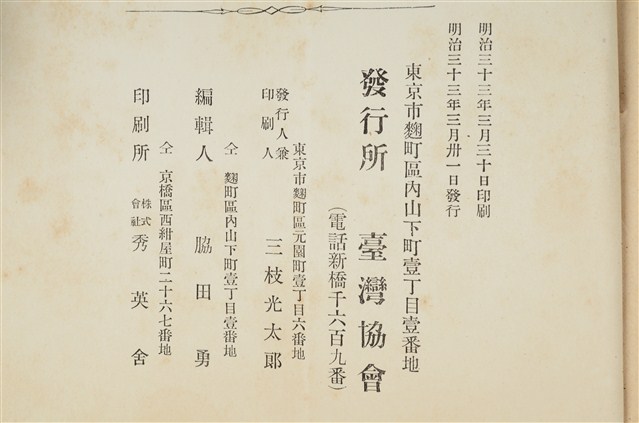 明治三十三年三月三十日印刷
明治三十三年三月卅一日發行
東京市麴町區內山下町壹丁目壹番地
發行所 臺灣協會
(電話新橋千六百九番)
東京市麴町區元園町壹丁目六番地
發行人兼印刷人 三枝光太郎
仝 麴町區內山下町壹丁目壹番地
編輯人 脇田勇
仝 京橋區西紺屋町二十六七番地
印刷所 株式會社 秀英舍